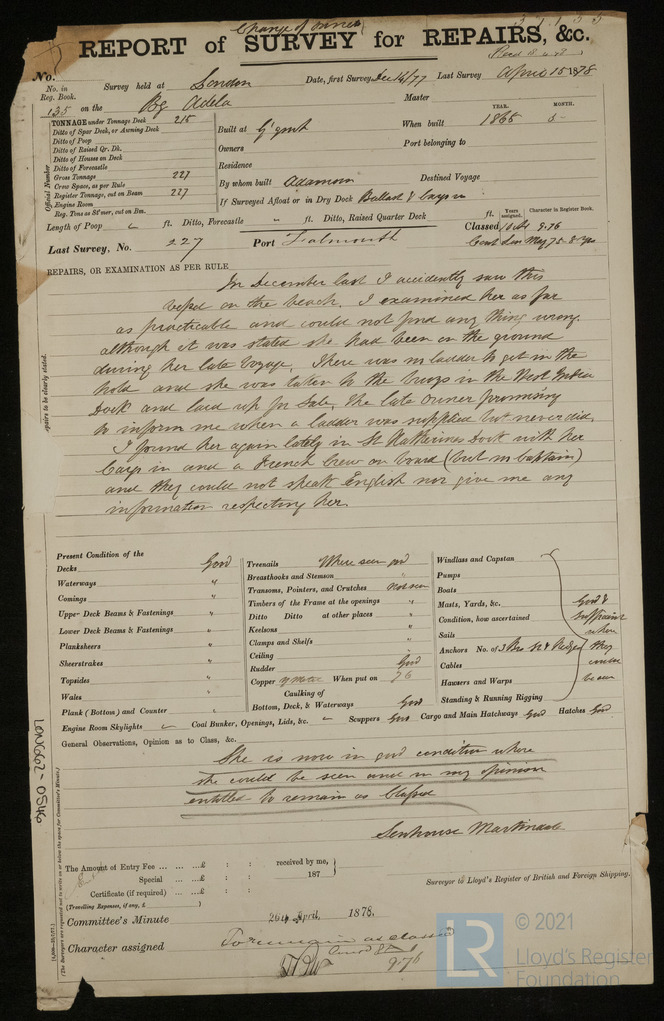 Change of Owner
REPORT of SURVEY for REPAIRS, &c.
No.
No. in Reg. Book.
Survey held at London
Date, first Survey Dec 14/77 Last Survey April 15 1878
135 on the Bg Adela
Master
TONNAGE under Tonnage Deck 215
Ditto of Spar Deck, or Awning Deck
Ditto of Poop
Ditto of Raised Qr. Dk.
Ditto of Houses on Deck
Ditto of Forecastle
Gross Tonnage 227
Crew Space, as per Rule
Register Tonnage, cut on Beam 227
Engine Room
Reg. Tons as St'mer, cut on Bm.
Official Number
Built at
When built
YEAR. 1865
MONTH. 5
Owners
Port belonging to
Residence
By whom built Adamson
Destined Voyage
If Surveyed Afloat or in Dry Dock Ballast & cargo in
Length of Poop " ft. Ditto, Forecastle " ft. Ditto, Raised Quarter Deck ft.
Years assigned.
Character in Register Book.
Classed 9.76
Last Survey, No. 227 Port Falmouth
Cont May 75
REPAIRS, OR EXAMINATION AS PER RULE
In December last I accidently saw this
vessel on the beach. I examined her as far
as practicable and could not find any thing wrong.
although it was stated she had been on the ground
during her late Voyage. There was no ladder to get in the
hold and she was taken to the buoys in the West India
Dock and laid up for Sale, the late owner promising
to inform me when a ladder was supplied but never did.
I found her again lately in St Katherines Dock with her
Cargo in and a French Crew on board (but no Captain)
and they could not speak English nor give me any
information respecting her.
Present Condition of the
Decks Good
Waterways "
Comings "
Upper Deck Beams & Fastenings "
Lower Deck Beams & Fastenings "
Planksheers "
Sheerstrakes "
Topsides "
Wales "
Plank (Bottom) and Counter "
Engine Room Skylights " Coal Bunker, Openings, Lids, &c. " Scuppers Good Cargo and Main Hatchways Good Hatches Good
Treenails Where seen good
Breasthooks and Stemson "
Transoms, Pointers, and Crutches Not seen
Timbers of the Frame at the openings "
Ditto Ditto at other places "
Keelsons "
Clamps and Shelfs "
Ceiling "
Rudder Good
Copper Y Metal When put on 76
Caulking of
Bottom, Deck, & Waterways Good
Windlass and Capstan
Pumps
Boats
Masts, Yards, &c.
Condition, how ascertained
Sails
Anchors No. of 3 Brs St & Kedge
Cables
Hawsers and Warps
Standing & Running Rigging
Good &
sufficient
where
they
could
be seen
General Observations, Opinion as to Class, &c.
She is now in good condition where
she could be seen and in my opinion
entitled to remain as Classed
Senhouse Martindale
The Amount of Entry Fee ... ... ...£ : : received by me,
Special ... ...£ : : 187
Certificate (if required) ... ...£ : :
(Travelling Expenses, if any, £ )
Surveyor to Lloyd's Register of British and Foreign Shipping.
Committee's Minute 26th April, 1878.
Character assigned To remain as classed
9.76
LON662-0546
LR
© 2021
Lloyd's Register
Foundation